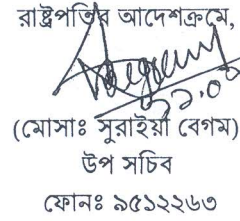 রাষ্ট্রপতির আদেশক্রমে,
(মোসাঃ সুরাইয়া বেগম)
উপ সচিব
ফোনঃ ৯৫১২২৬৩